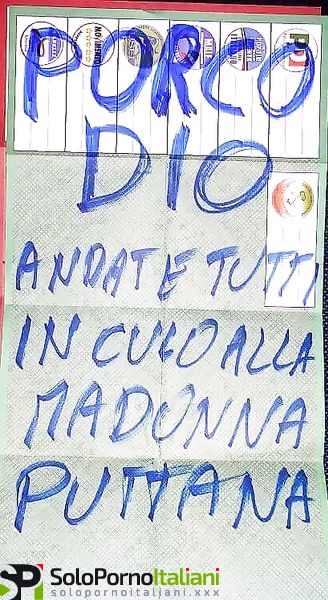 PORCO
DIO
ANDATE TUTTI
IN CULO ALLA
MADONNA
PUTTANA
SP SoloPornoItaliani
solopornoitaliani.xxx